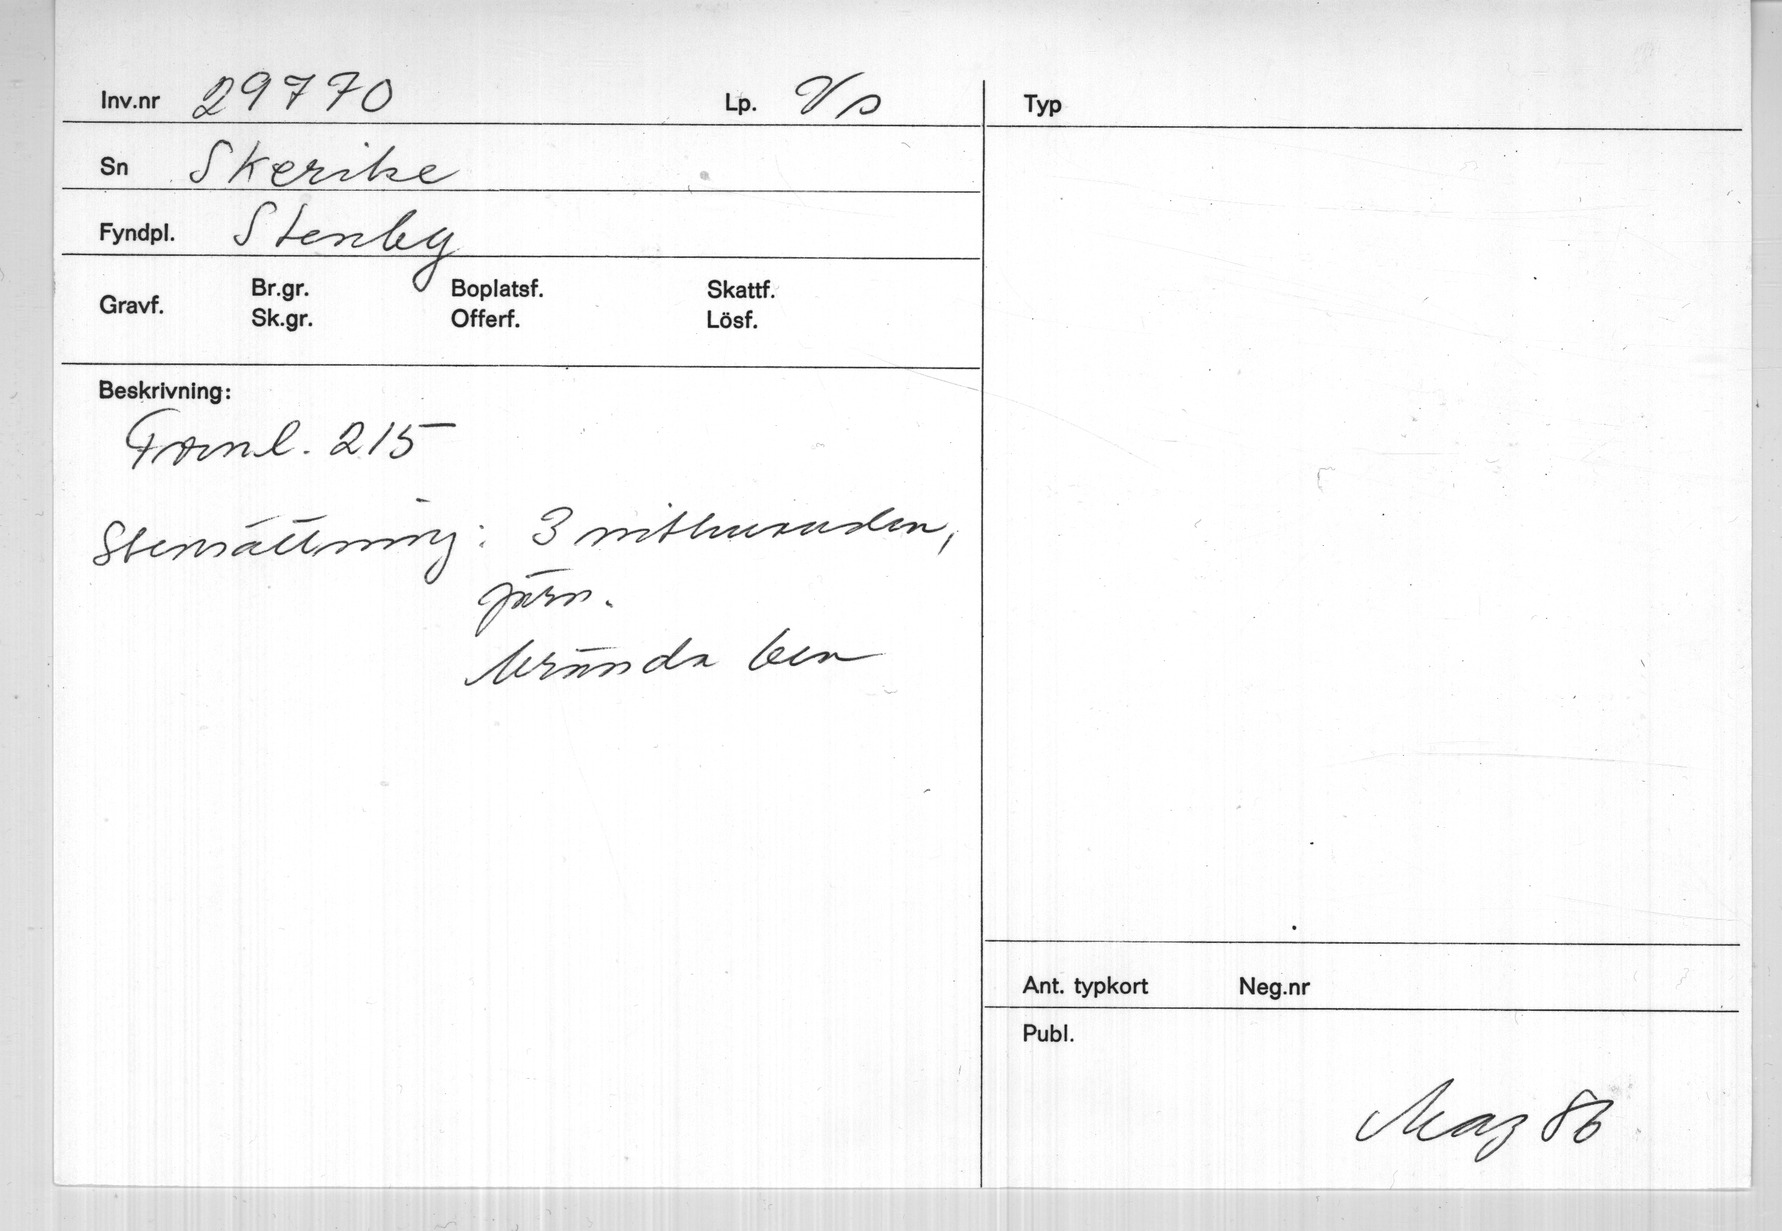 Inv.nr 29770 Lp. Vs
Sn Skerike
Fyndpl. Stenby
Gravf. Br.gr. Boplatsf. Skattf.
Sk.gr. Offerf. Lösf.
Beskrivning:
Fornl. 215
Stensättning: 3 nithuvuden,
järn.
brända ben
Typ
Ant. typkort Neg.nr
Publ.
Maj 86